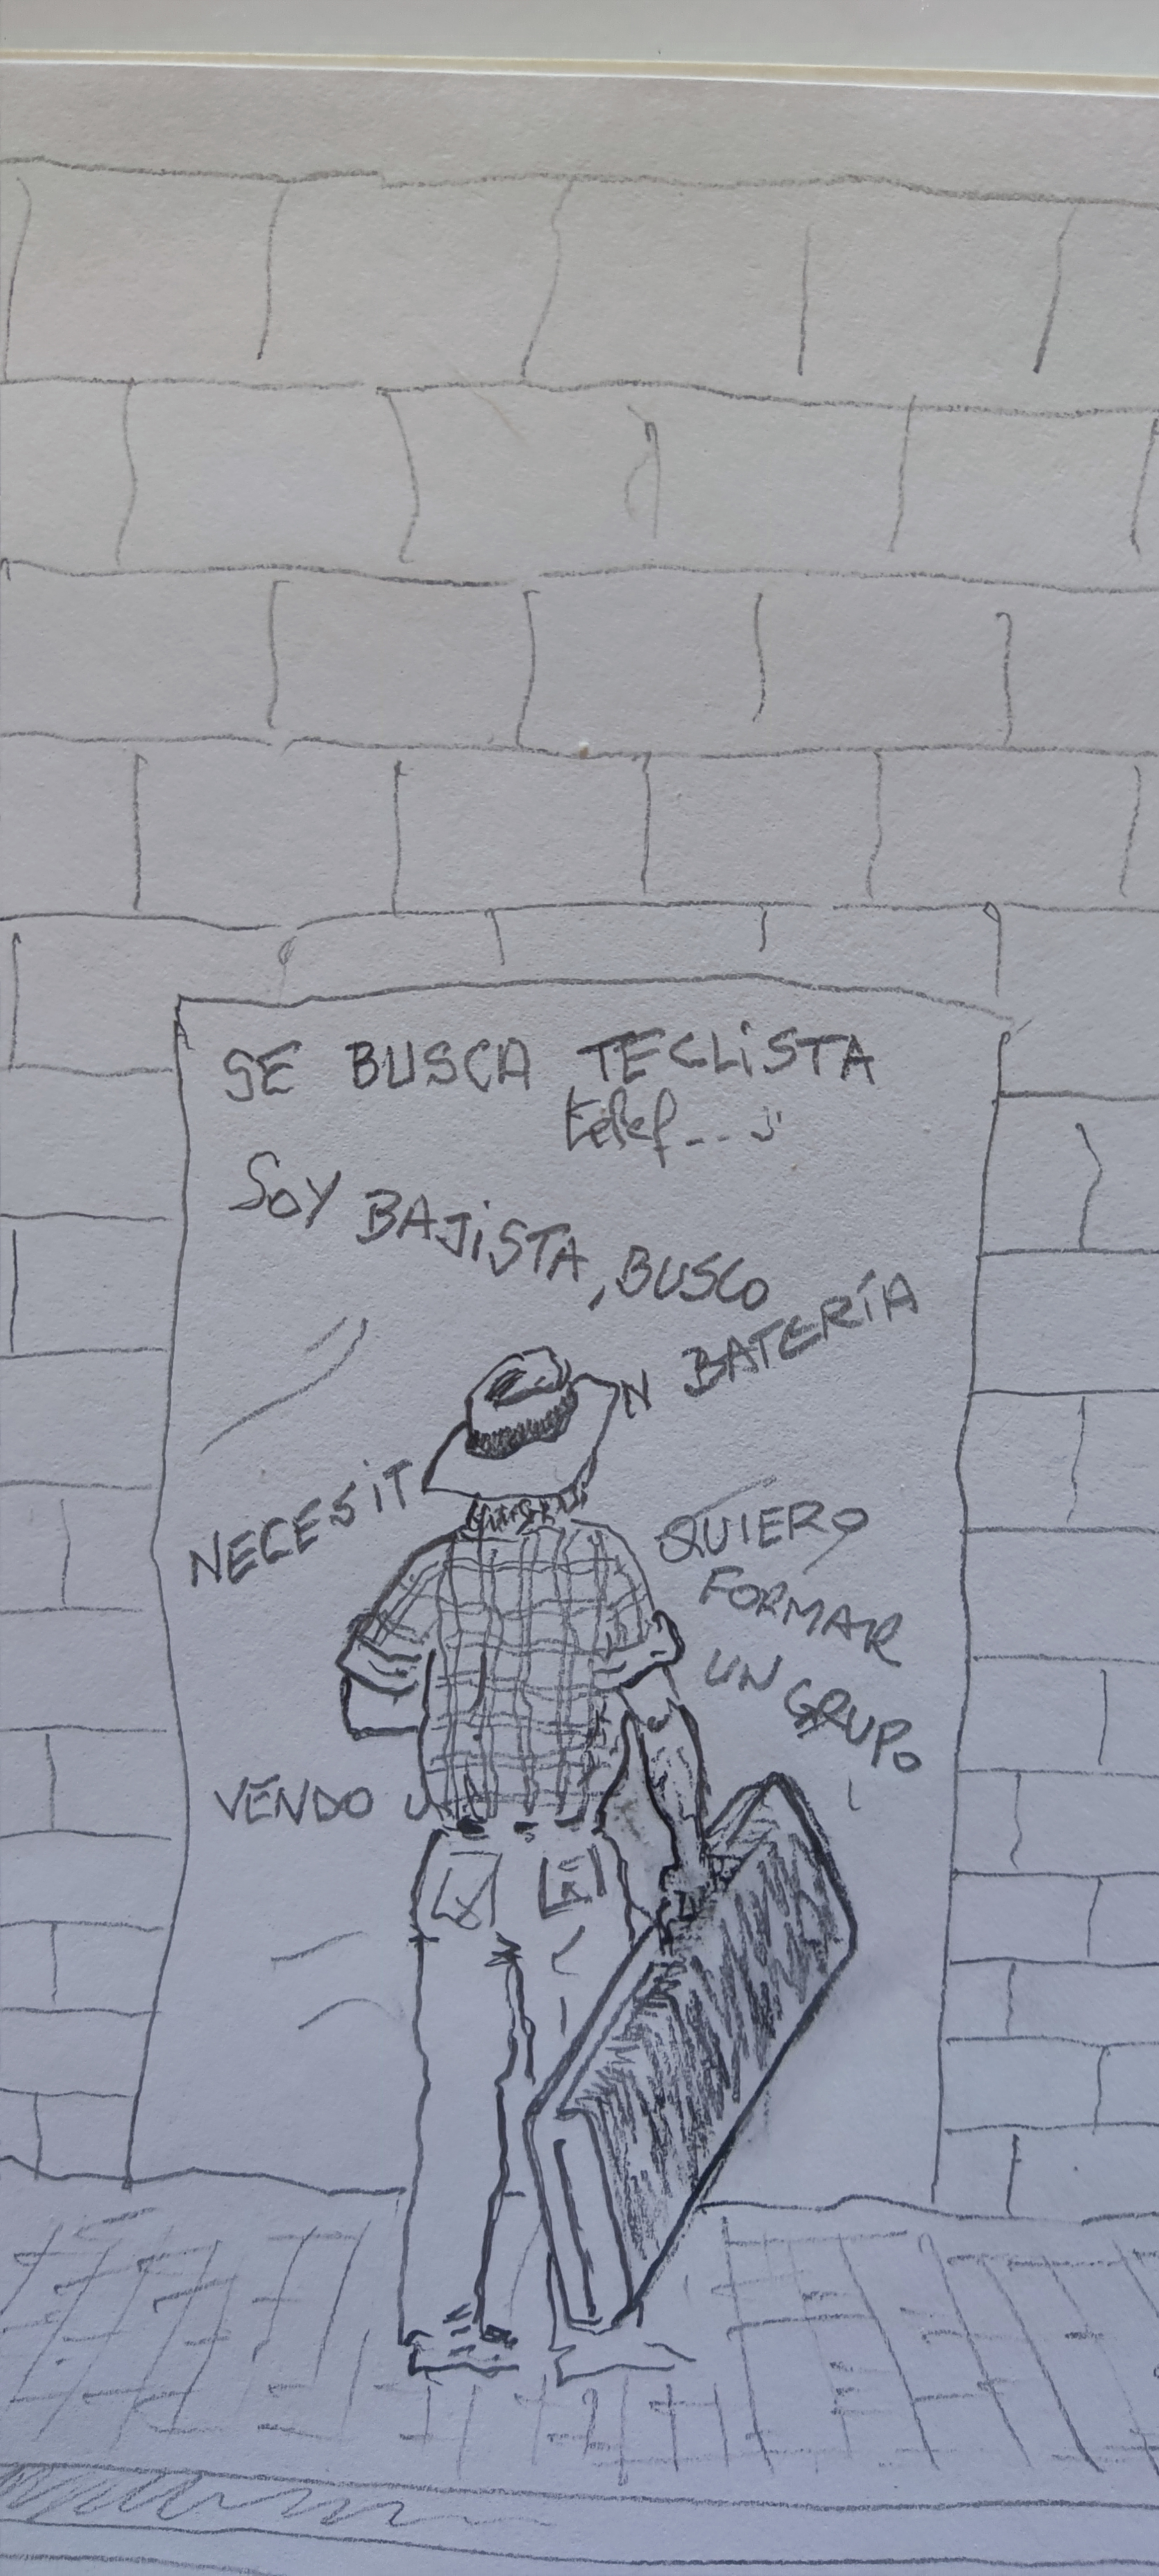 SE BUSCA TECLISTA
telef...
SOY BAJISTA, BUSCO
N BATERÍA
NECESIT
QUIERO
FORMAR
UN GRUPO
VENDO U